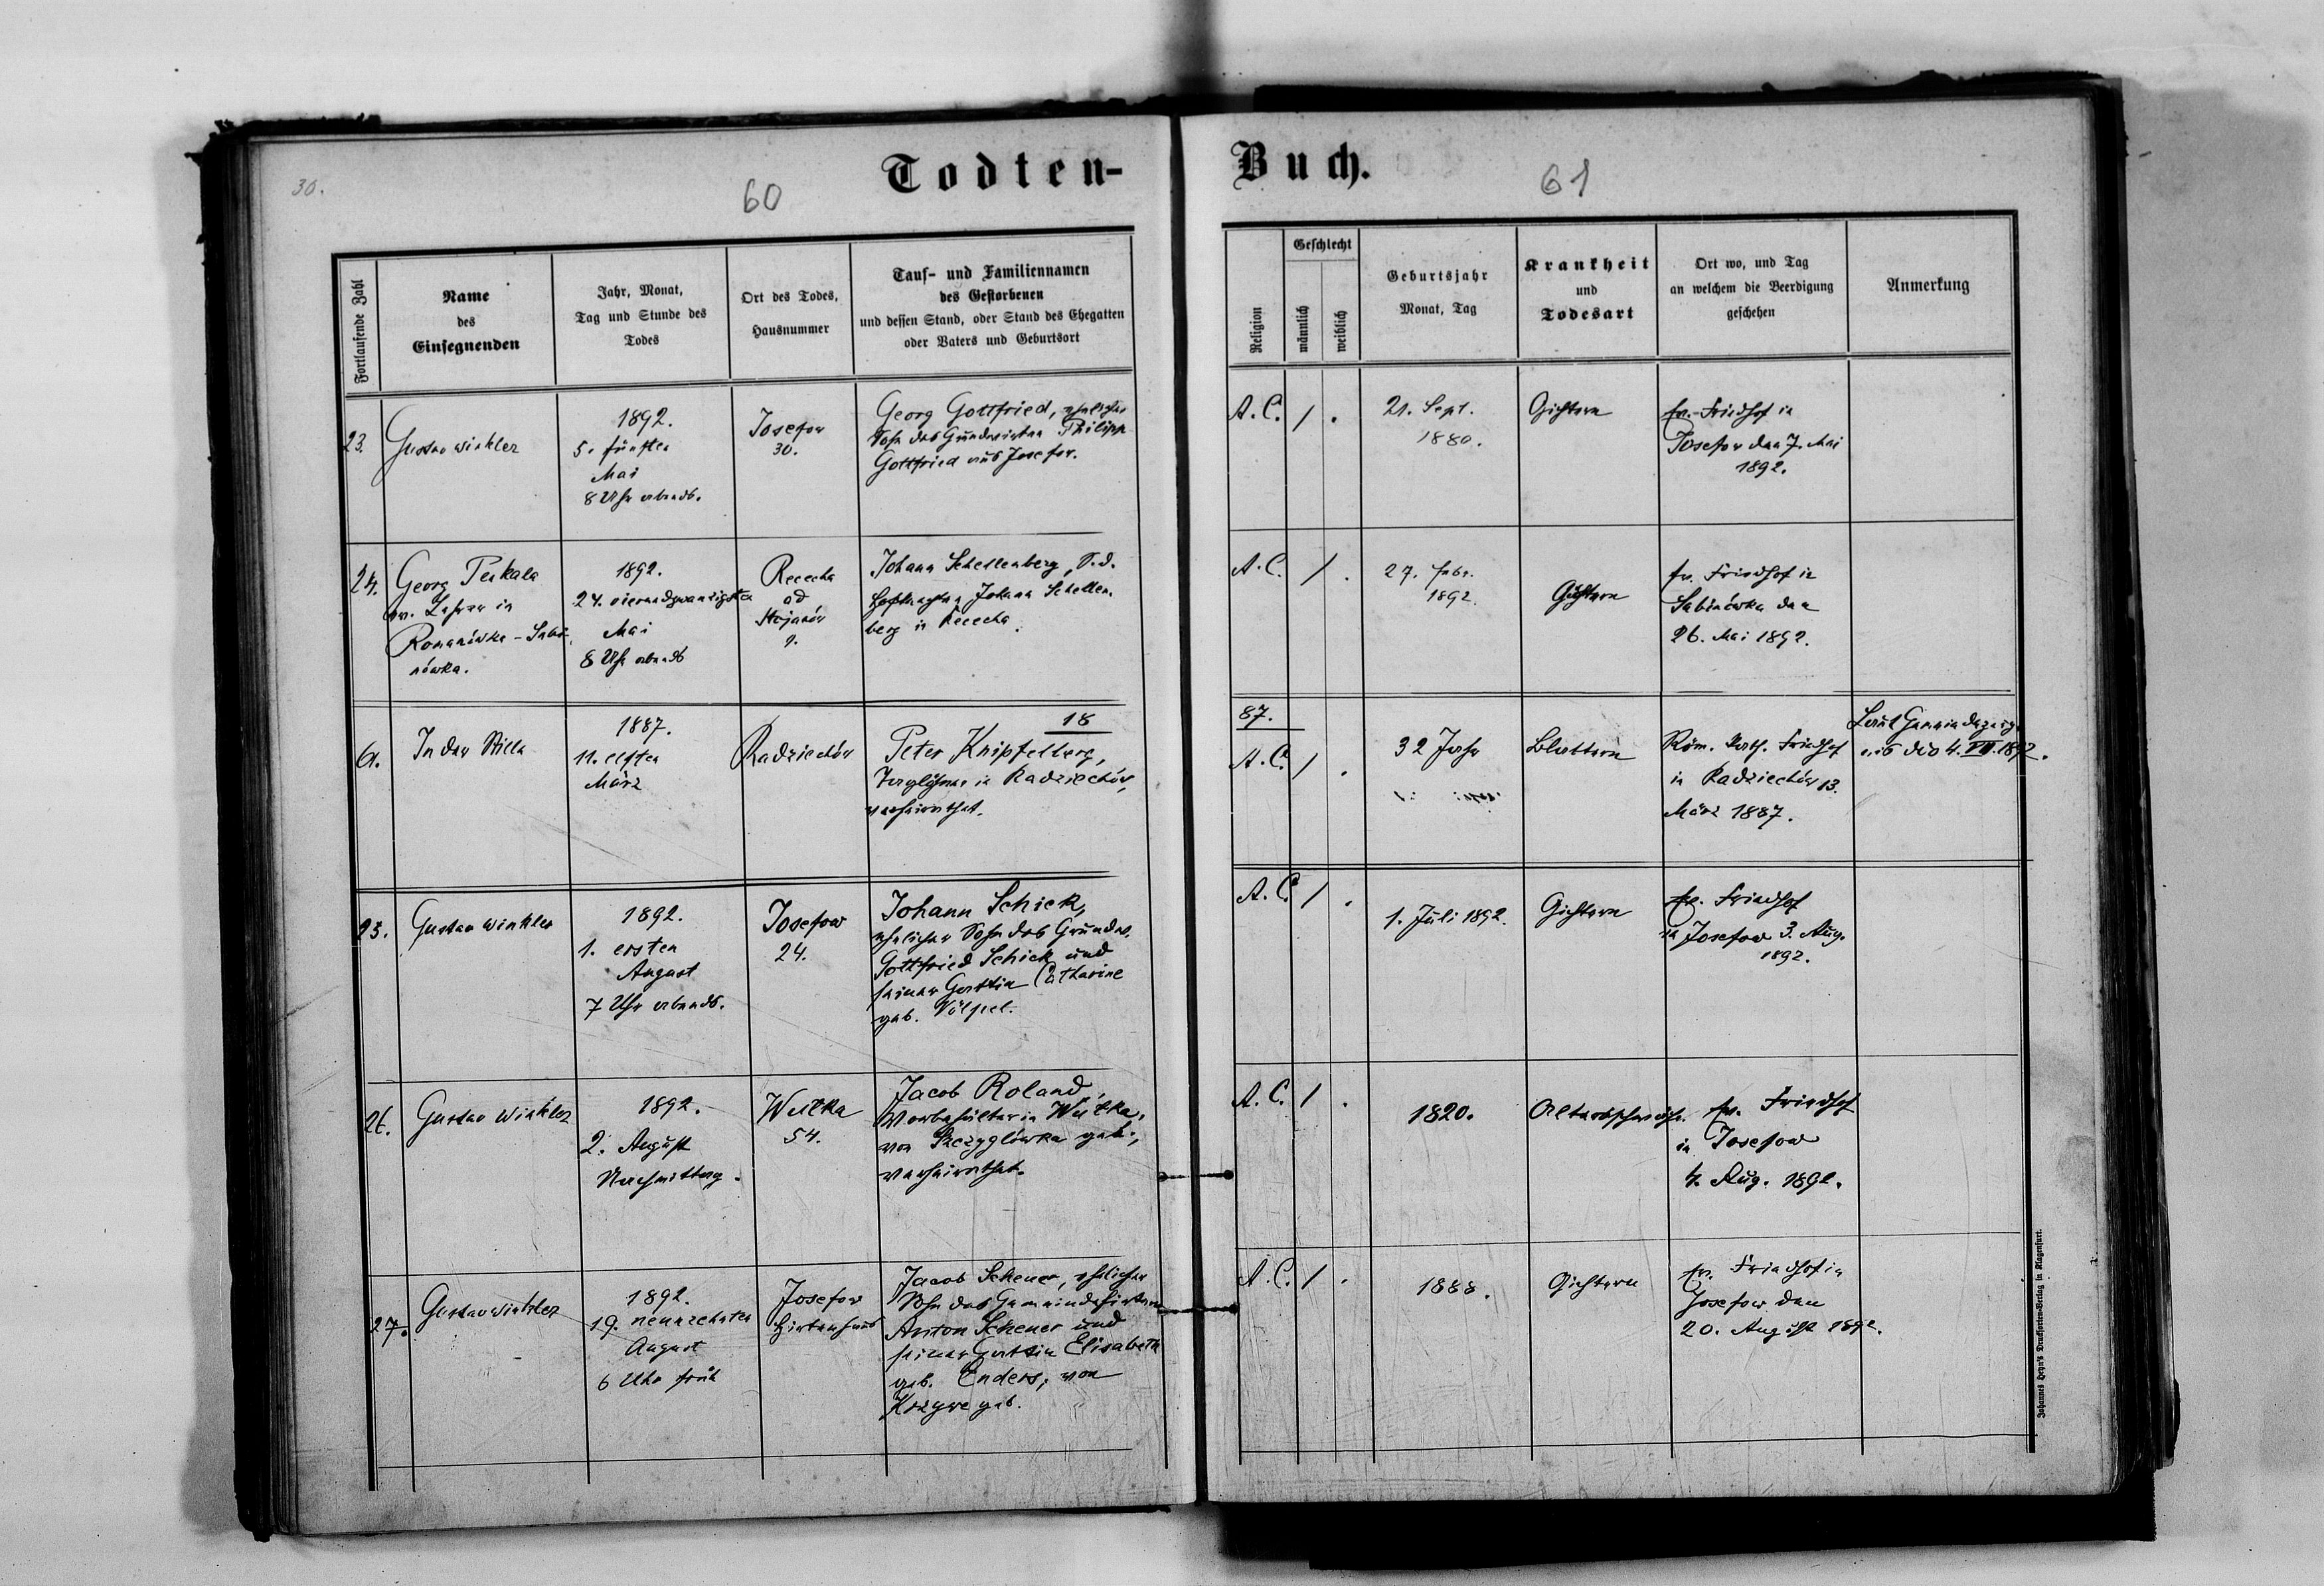 30.
60
Todten-
Buch.
61
Fortlaufende Zahl
Name
des
Einsegnenden
Jahr, Monat,
Tag und Stunde des
Todes
Ort des Todes,
Hausnummer
Tauf- und Familiennamen
des Gestorbenen
und dessen Stand, oder Stand des Ehegatten
oder Vaters und Geburtsort
Religion
Geschlecht
männlich
weiblich
Geburtsjahr
Monat, Tag
Krankheit
und
Todesart
Ort wo, und Tag
an welchem die Beerdigung
geschehen
Anmerkung
23.
Gustav Winkler
1892.
5. fünften
Mai
8 Uhr abends.
Josefow
30.
Georg Gottfried, ehelicher
Sohn des Grundwirten Philipp
Gottfried aus Josefow.
A. C. / .
21. Sept.
1880.
Gichtern
Ev. Friedhof in
Josefow den 7. Mai
1892.
24.
Georg Peskala
ev. Lehrer in
Romanówka - Sabi-
nówka.
1892.
24. vierundzwanzigsten
Mai
8 Uhr abends
Rececha
ad
Stojanów
Johann Schellenberg, S. d.
Johann Schellen-
berg in Rececha.
A. C. / .
27. Febr.
1892.
Gichtern
Ev. Friedhof in
Sabinówka den
26. Mai 1892.
In der Stille
1887.
11. elften
März
Radziechów
18
Peter Knipfelberg,
Taglöhner in Radziechów,
verheirathet.
87.
A. C. / .
32 Jahr
Blattern
Röm. Kath. Friedhof
in Radziechów 13.
März 1887.
Laut Gemeindezeug.
4. VII. 1892.
25.
Gustav Winkler
1892.
1. ersten
August
7 Uhr abends.
Josefow
24.
Johann Schick,
ehelicher Sohn des Grundw.
Gottfried Schick und
seiner Gattin Catharine
geb. Völpel.
A. C. / .
1. Juli 1892.
Gichtern
Ev. Friedhof
in Josefow 3. Aug.
1892.
26.
Gustav Winkler
1892.
2. August
Nachmittag.
Wutka
54.
Jacob Roland,
Vorbehälter in Wutka,
von Strzyglówka geb.,
verheirathet.
A. C. / .
1820.
Altersschwäche.
Ev. Friedhof
in Josefow
4. Aug. 1892.
27.
Gustav Winkler
1892.
19. neunzehnten
August
6 Uhr früh
Josefow
Hirtenhaus
Jacob Scheuer, ehelicher
Sohn des Gemeindehirten
Anton Scheuer und
seiner Gattin Elisabeth
geb. Enders, von
geb.
A. C. / .
1888.
Gichtern
Ev. Friedhof in
Josefow den
20. August 1892.
Johannes Heyn's Drucksorten-Verlag in Klagenfurt.